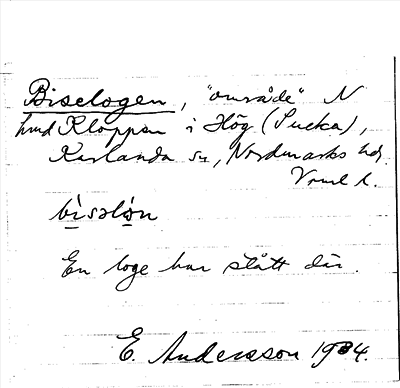 Biselogen, "område" N
hmd Kloppan i Hög (Pucka),
Karlanda sn, Nordmarks hd,
Vrml l.
bisəlo̱n
En loge har stått där.
E. Andersson 1934.